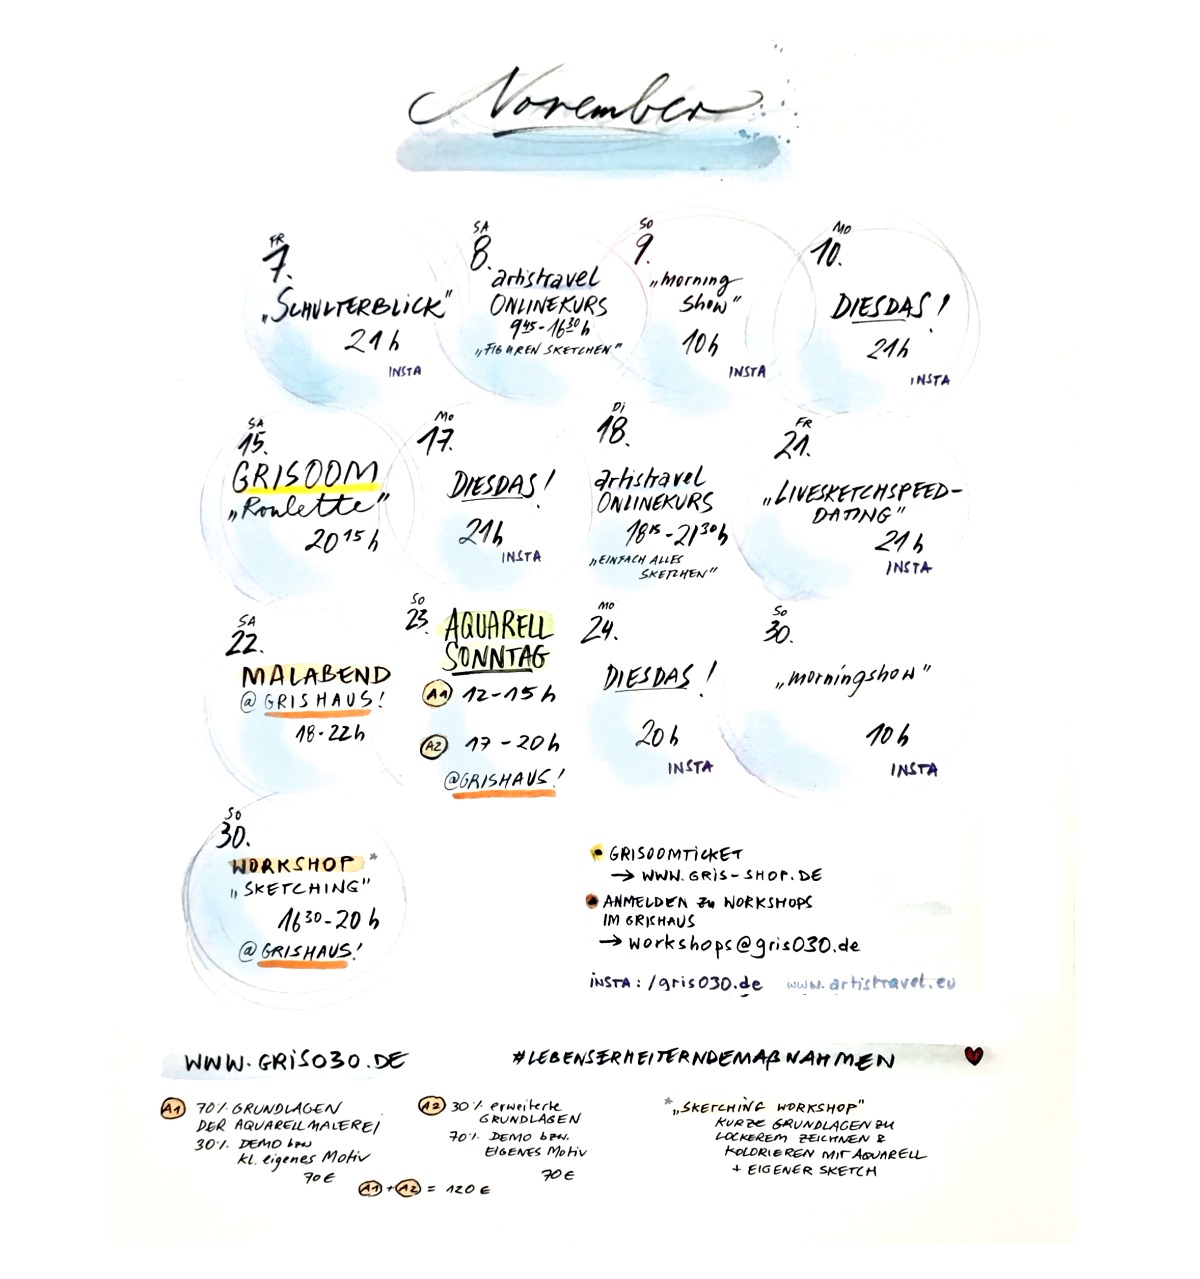 November
FR
7.
„SCHULTERBLICK“
21h
INSTA
SA
8.
artistravel
ONLINEKURS
9⁴⁵-16³⁰h
„FIGUREN SKETCHEN“
SO
9.
„morning
Show“
10h
INSTA
MO
10.
DIESDAS!
21h
INSTA
SA
15.
GRISOOM
„Roulette“
20¹⁵h
MO
17.
DIESDAS!
21h
INSTA
Di
18.
artistravel
ONLINEKURS
18¹⁵-21³⁰h
„EINFACH ALLES
SKETCHEN“
FR
21.
„LIVESKETCHSPEED-
DATING“
21h
INSTA
SA
22.
MALABEND
@GRISHAUS!
18-22h
SO
23.
AQUARELL
SONNTAG
A1 12-15h
A2 17-20h
@GRISHAUS!
MO
24.
DIESDAS!
20h
INSTA
SO
30.
„morningshow“
10h
INSTA
SO
30.
WORKSHOP*
„SKETCHING“
16³⁰-20h
@GRISHAUS!
GRISOOMTICKET
→ WWW.GRIS-SHOP.DE
ANMELDEN zu WORKSHOPS
IM GRISHAUS
→ workshops@gris030.de
INSTA: /gris030.de www.artistravel.eu
WWW.GRIS030.DE
#LEBENSERHEITERNDEMAßNAHMEN
A1 70% GRUNDLAGEN
DER AQUARELLMALEREI
30% DEMO bzw
kl. eigenes Motiv
70€
A2 30% erweiterte
GRUNDLAGEN
70% DEMO bzw.
EIGENES Motiv
70€
A1 + A2 = 120€
*„SKETCHING WORKSHOP“
KURZE GRUNDLAGEN ZU
LOCKEREM ZEICHNEN &
KOLORIEREN MIT AQUARELL
+ EIGENER SKETCH